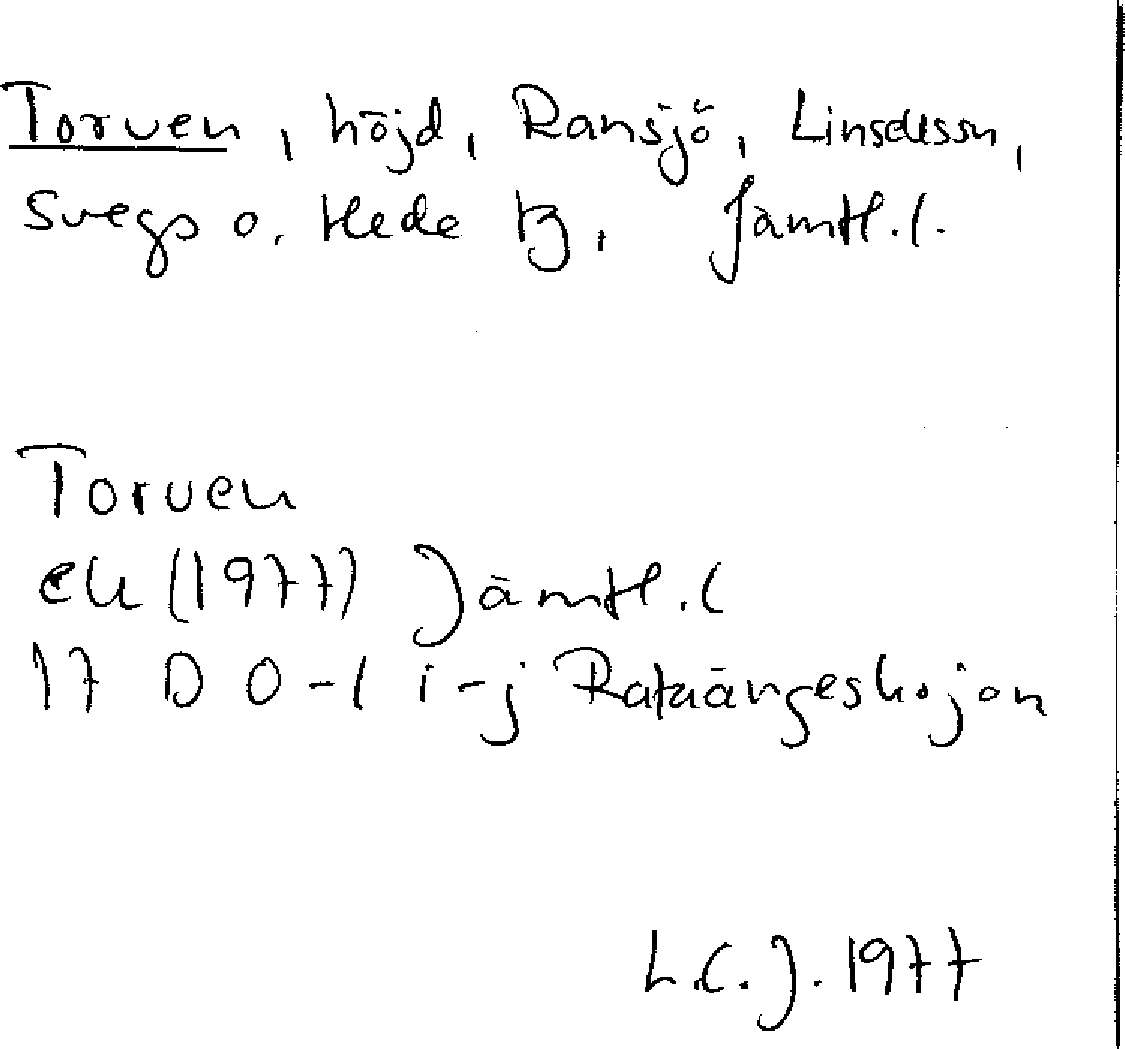 Torven, höjd, Ransjö, Linsellssn,
Svegs o. Hede tg, Jämtl.l.
Torven
ek (1977) Jämtl.l
17 D 0-1 i-j Rataängeskojan
L.C.J. 1977